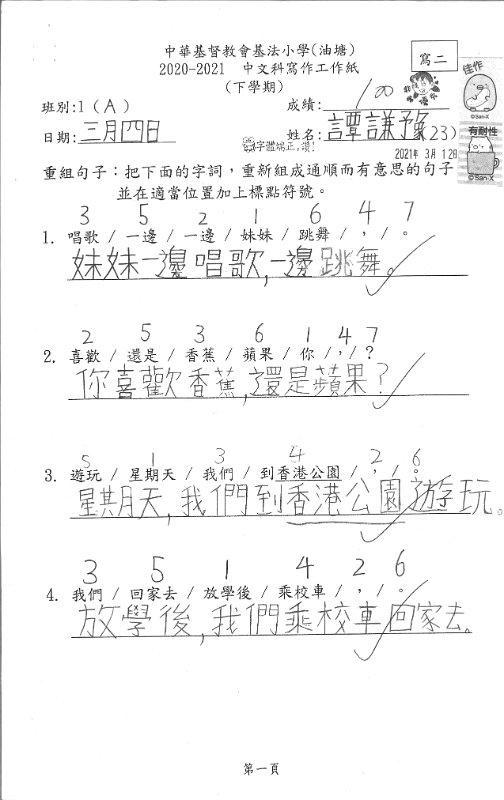 中華基督教會基法小學(油塘)
寫二
2020-2021 中文科寫作工作紙
(下學期)
佳作
©San-X
班別:1(A) 成績:100
有耐性
©San-X
日期:三月四日 字體端正,讚! 姓名:譚謙豫(23)
2021年 3月 12日
重組句子:把下面的字詞,重新組成通順而有意思的句子
並在適當位置加上標點符號。
3 5 2 1 6 4 7
1. 唱歌 / 一邊 / 一邊 / 妹妹 / 跳舞 / , / 。
妹妹一邊唱歌,一邊跳舞。
2 5 3 6 1 4 7
2. 喜歡 / 還是 / 香蕉 / 蘋果 / 你 / , / ?
你喜歡香蕉,還是蘋果?
5 1 3 4 2 6
3. 遊玩 / 星期天 / 我們 / 到香港公園 / , / 。
星期天,我們到香港公園遊玩。
3 5 1 4 2 6
4. 我們 / 回家去 / 放學後 / 乘校車 / , / 。
放學後,我們乘校車回家去。
第一頁